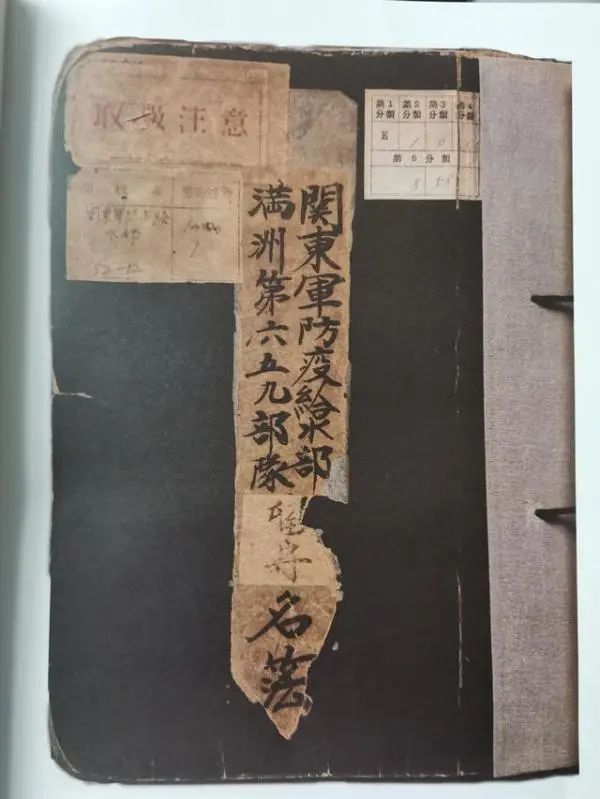 取扱注意
第1分類
第2分類
第3分類
第4
E
1
0
第5分類
5
55
関東軍防疫給水部
満洲第六五九部隊
留守
名簿